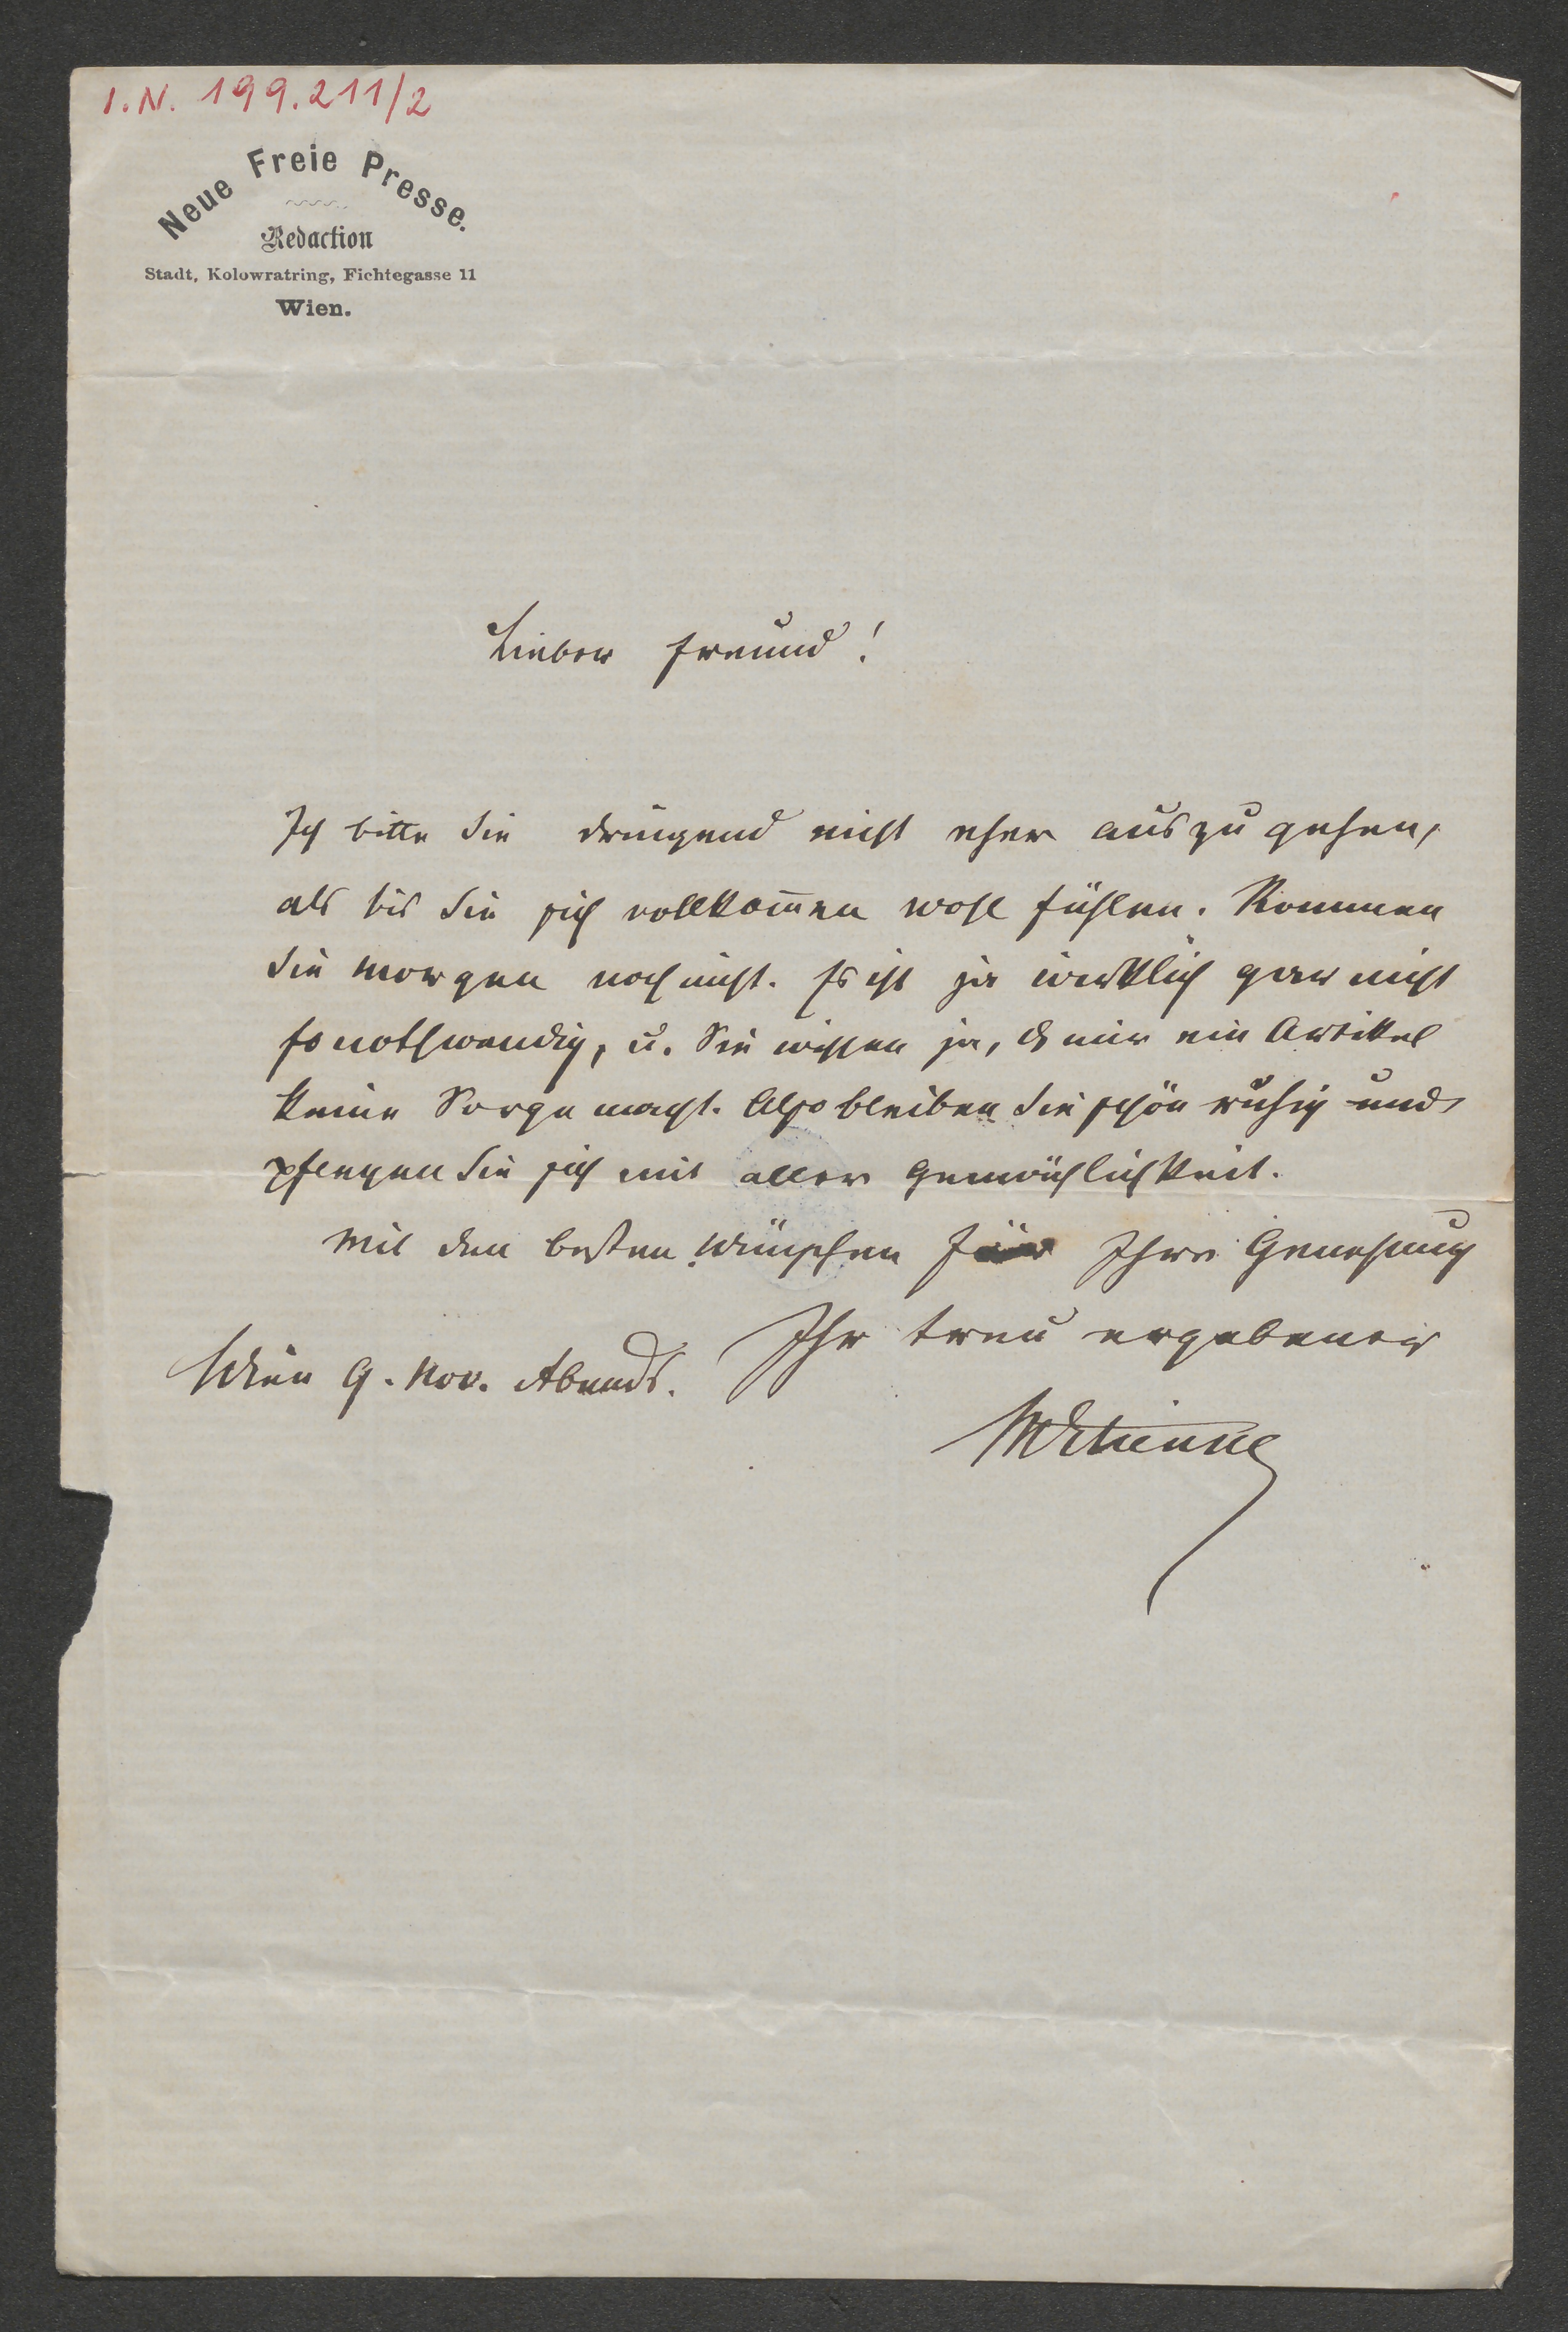 I.N. 199.211/2
Neue Freie Presse.
Redaction
Stadt, Kolowratring, Fichtegasse 11
Wien.
Lieber Freund!
Ich bitte Sie dringend nicht eher auszugehen,
als bis Sie sich vollkom̅en wohl fühlen. Kommen
Sie morgen noch nicht. Es ist ja wirklich gar nicht
so nothwendig, u. Sie wissen ja, ds mir ein Artikel
keine Sorge macht. Also bleiben Sie schön ruhig und
pflegen Sie sich mit aller Gemächlichkeit.
Mit den besten Wünschen für Ihre Genesung
Ihr treu ergebener
Wien 9. Nov. Abends.
MEtienne